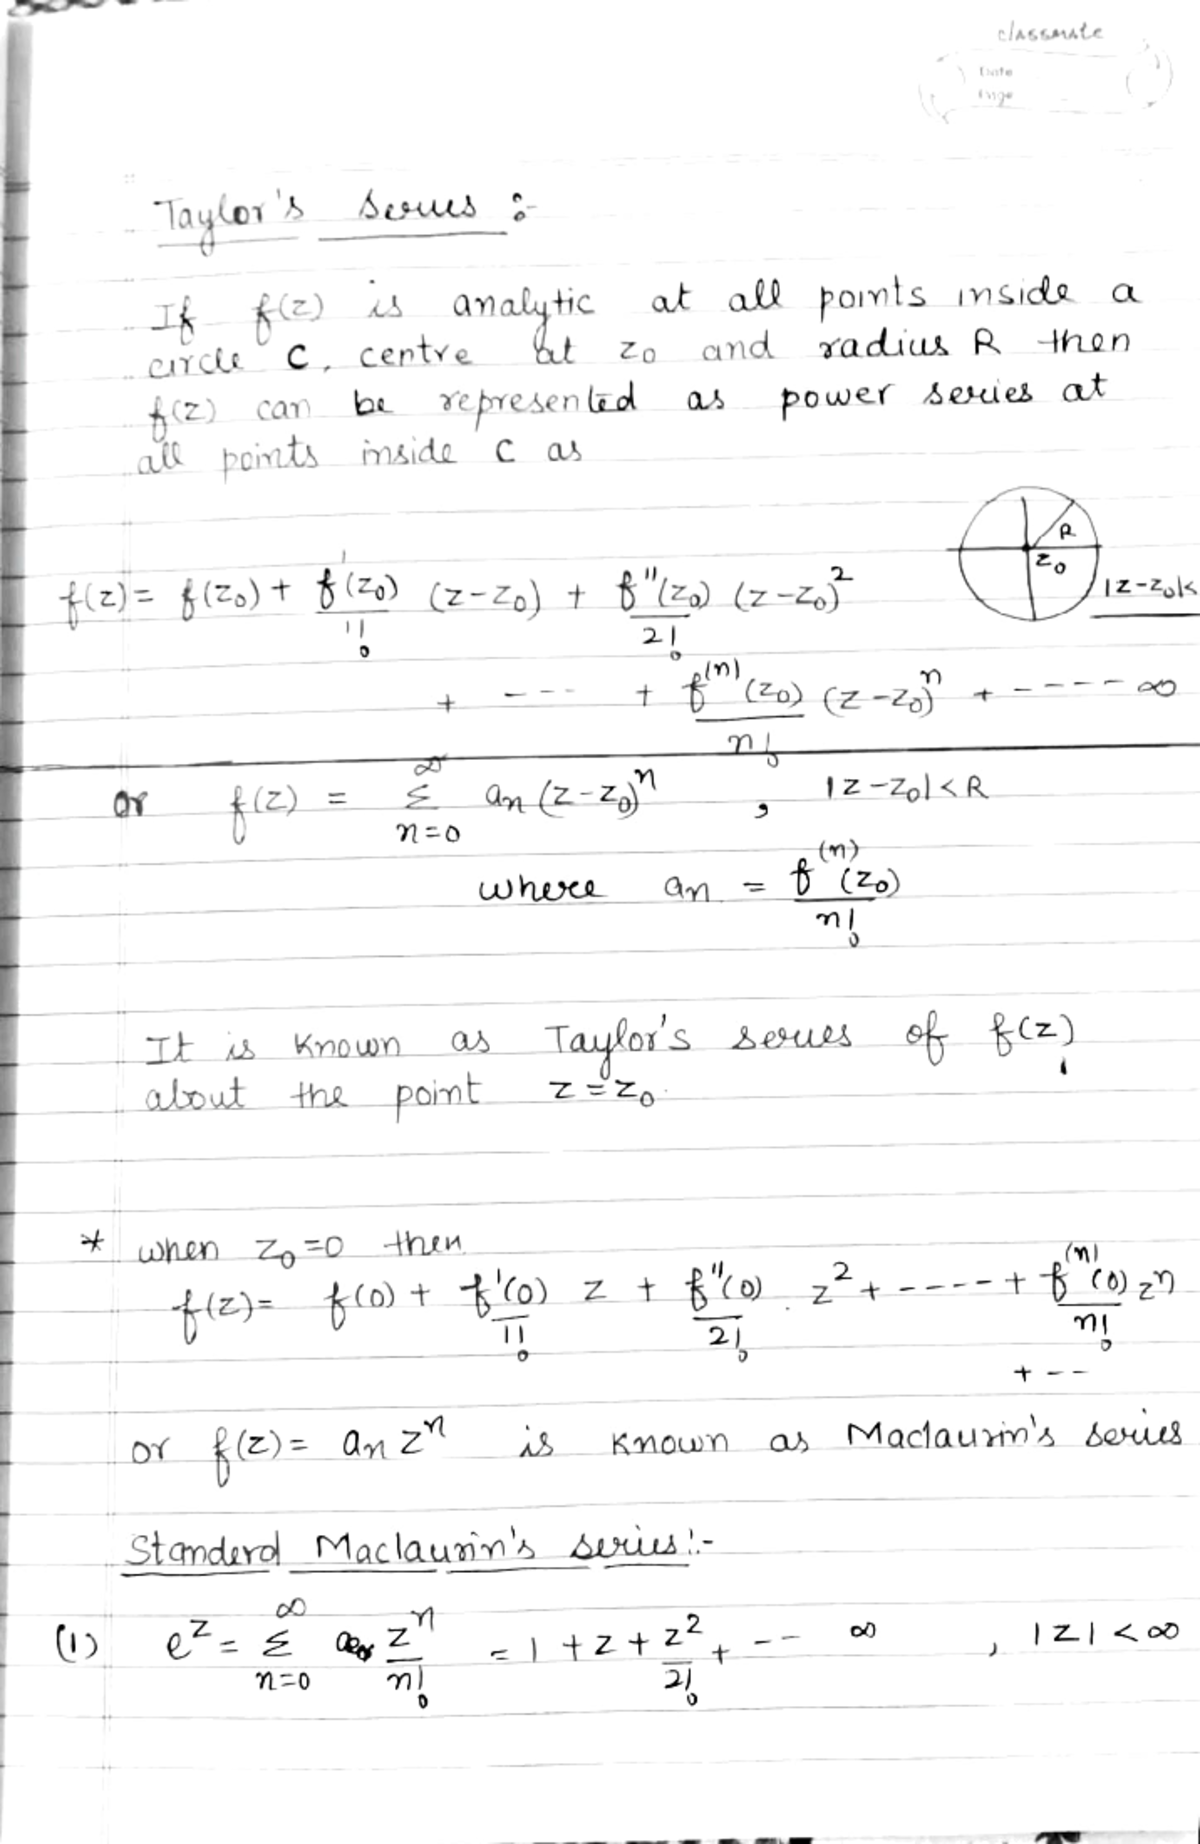 classmate
Date
Page
Taylor's series :-
If f(z) is analytic at all points inside a
circle C, centre at z₀ and radius R then
f(z) can be represented as power series at
all points inside C as
R
z₀
|z-z₀|<
f(z) = f(z₀) + f'(z₀)/1! (z-z₀) + f''(z₀)/2! (z-z₀)²
+ --- + f⁽ⁿ⁾(z₀)/n! (z-z₀)ⁿ + ----- ∞
or f(z) = ∞ Σ n=0 aₙ(z-z₀)ⁿ , |z-z₀|<R
where aₙ = f⁽ⁿ⁾(z₀)/n!
It is known as Taylor's series of f(z)
about the point z = z₀.
* when z₀=0 then
f(z) = f(0) + f'(0)/1! z + f''(0)/2! . z² + ---- + f⁽ⁿ⁾(0)/n! zⁿ
+ --
or f(z) = aₙ zⁿ is known as Maclaurin's series
Standerd Maclaurin's series:-
(1) e^z = ∞ Σ n=0 zⁿ/n! = 1 + z + z²/2! + -- ∞ , |z| < ∞